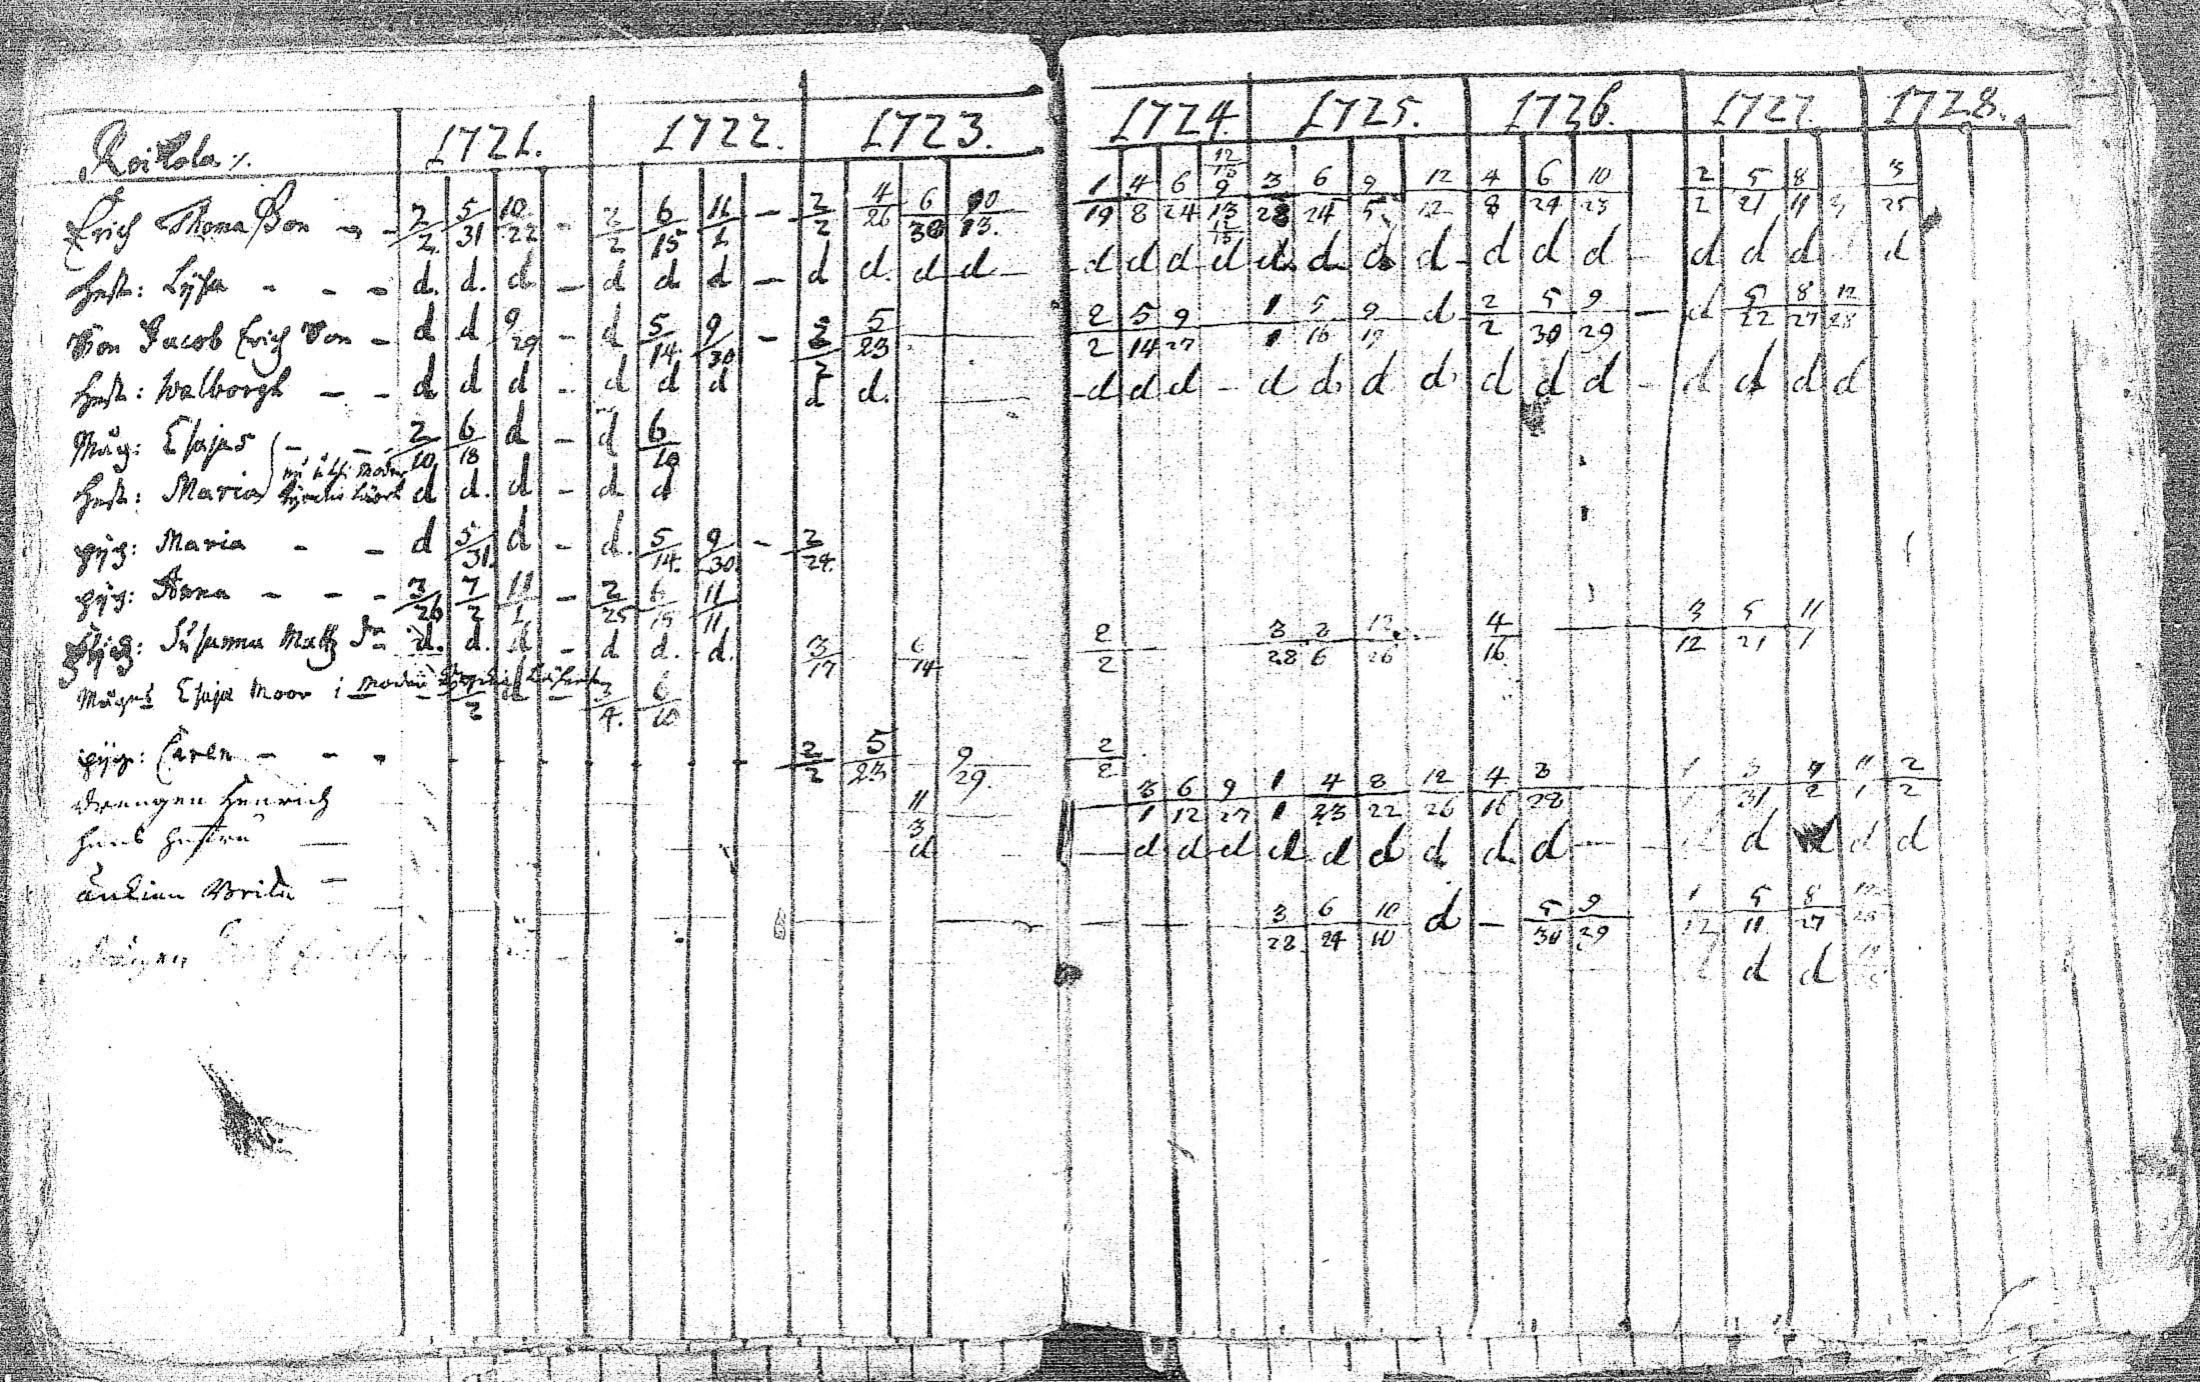 1721. 1722. 1723. 1724. 1725. 1726. 1727. 1728.
Roikola ٪.
12/13
Erich Thomasson - - 2/2 5/31 10/22 - 2/2 6/15 11/1 - 2/2 4/26 6/30 10/13. 1/19 4/8 6/24 9/13 3/28 6/24 9/5 12/12 4/8 6/24 10/23 2/2 5/21 8/11 3/25
12/13
Hust: Lÿsa - - - d. d. d - d d d - d d. d d - d d d d d. d. d d - d d d - d d d d
Son Jacob Erich Son - d d 9/29 - d 5/14. 9/30 - 2/2 5/23 2/2 5/14 9/27 1/1 5/16 9/19 d 2/2 5/30 9/29 - d 5/22 8/27 12/28
Hust: Walborgh - - d d d - d d d d d. - d d d - d d d d d d d - d d d d
Måg: Esajas - - 2/10 6/18 d - d 6/10
Hust: Maria d d. d - d d
pÿg: Maria - - d 5/31. d - d. 5/14. 9/30. - 2/24.
pÿg: Anna - - - 3/26 7/2 11/1 - 2/25 6/15 11/11
pÿg: Susanna Matz dr d. d. d - d d. d. 3/17 6/14 2/2 3/28 3/6 12/26 4/16 3/12 5/21 11/1
Mågens Esaja Moor i 7/2 3/4. 6/10
pÿg: Caren - - - 2/2 5/23 9/29. 2/2
Drengen Henrich 11/3 3/1 6/12 9/27 1/1 4/23 8/22 12/26 4/16 3/28 3/31 11/1 2/2
Hans Hustru - d d d d d d d d d. d d d d
Änkian Brita - 3/28 6/24 10/10 d - 5/30 9/29 1/12 5/11 8/27
d d